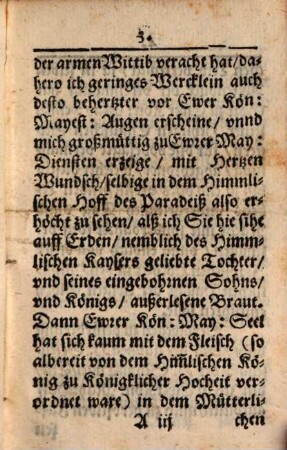 3.
der armen Wittib veracht hat/da-
hero ich geringes Wercklein auch
desto behertzter vor Ewer Kön:
Mayest: Augen erscheine/ vnnd
mich großmüttig zu Ewrer May:
Diensten erzeige/ mit Hertzen
Wundsch/selbige in dem Himmli-
schen Hoff des Paradeiß also er-
höcht zu sehen/ alß ich Sie hie sihe
auff Erden/ nemblich des Himm-
lischen Kaysers geliebte Tochter/
vnd seines eingebohrnen Sohns/
vnd Königs/ außerlesene Braut.
Dann Ewrer Kön: May: Seel
hat sich kaum mit dem Fleisch (so
albereit von dem Him̃lischen Kö-
nig zu Königklicher Hocheit ver-
ordnet ware) in dem Mütterli-
A iij chen